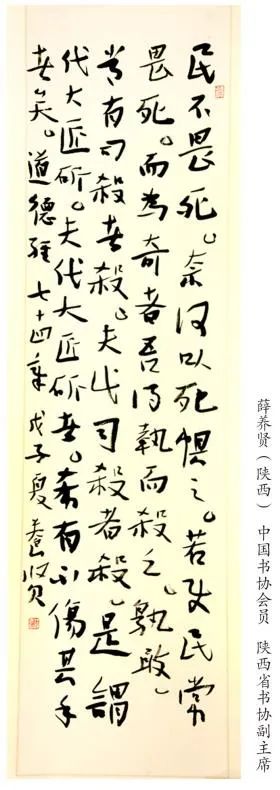 民不畏死。奈何以死惧之。若使民常
畏死。而為奇者吾得執而殺之。孰敢。
常有司殺者殺。夫代司殺者殺。是謂
代大匠斫。夫代大匠斫者。希有不傷其手
者矣。道德經 七十四章 戊子夏 養賢
薛养贤（陕西） 中国书协会员 陕西省书协副主席